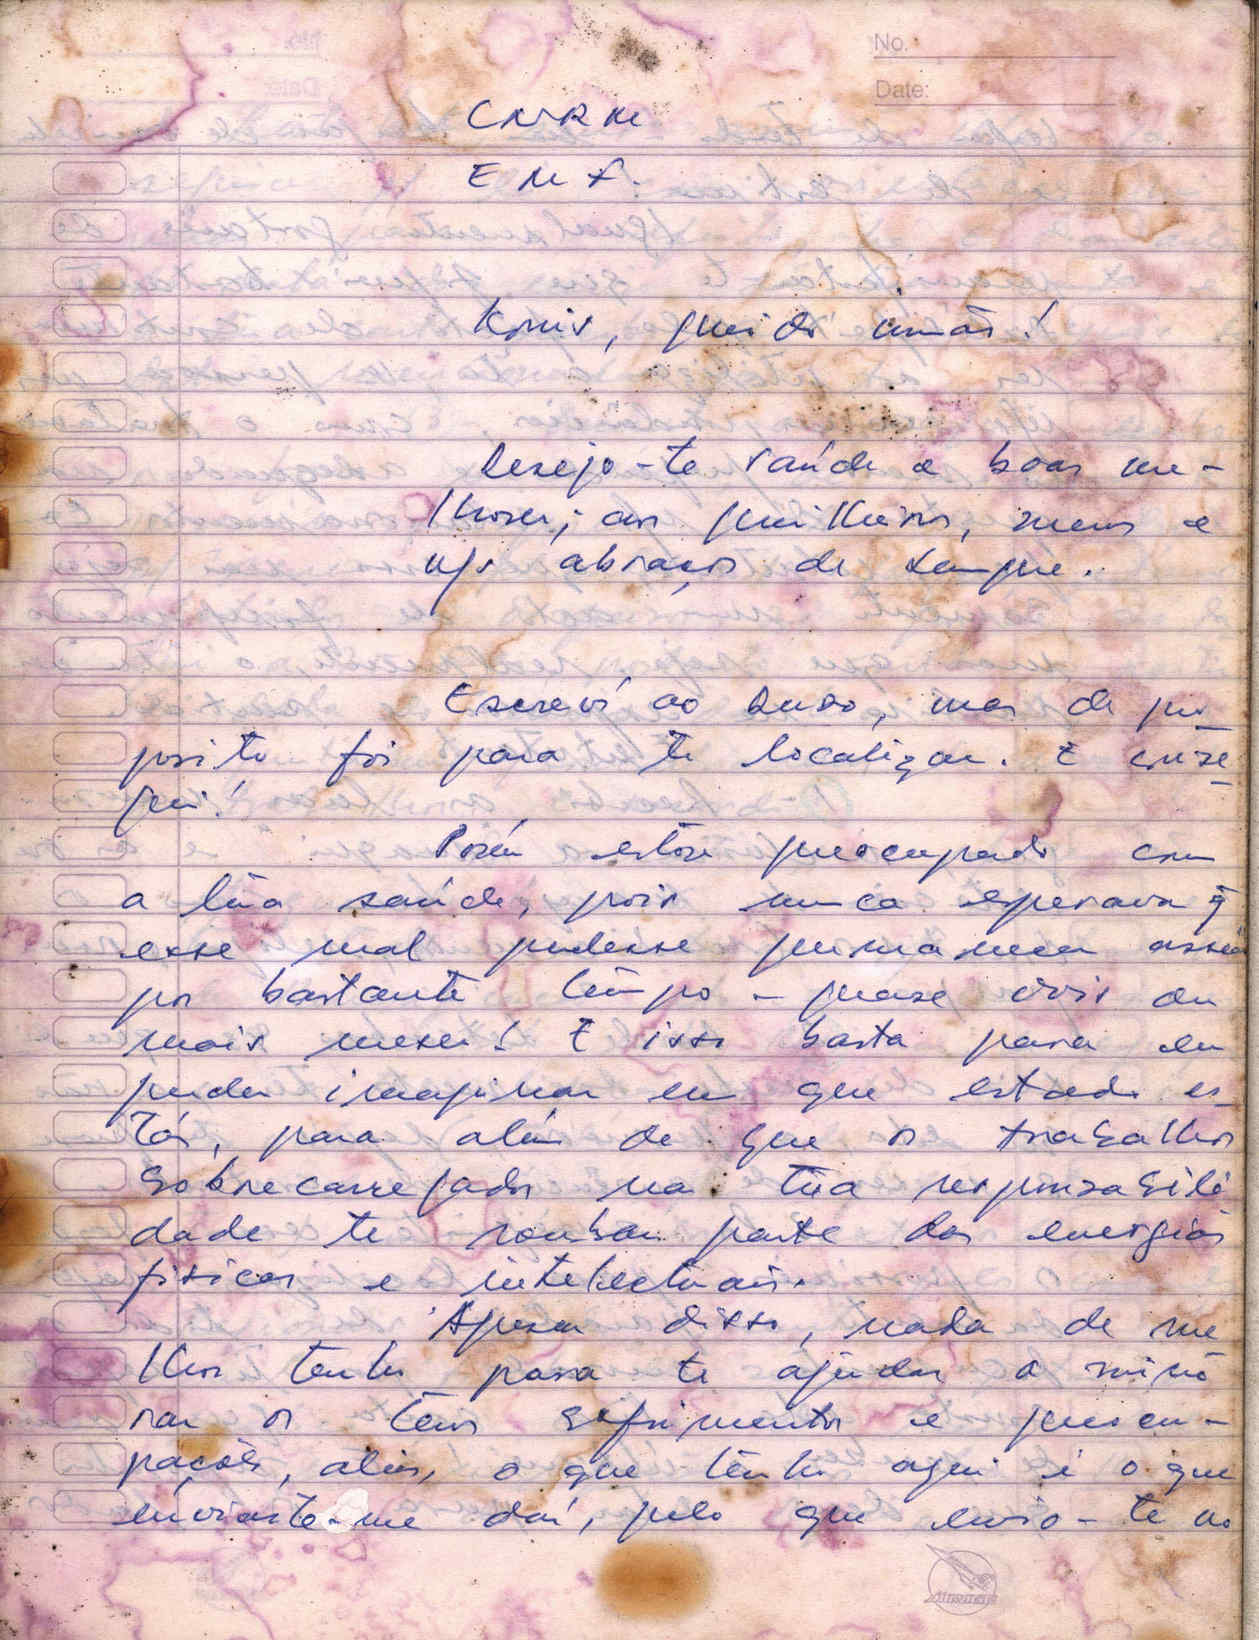 No.
Date:
CNRM
E M F.
Konis, querido irmão!
Desejo-te saúde e boas me-
lhoras; aos guilheiros, meus e
n/s abraços de sempre.
Escrevi ao Duso, mas de pro
posito foi para te localizar. E conse
gui!
Porém estou preocupado com
a túa saúde, pois nunca esperava q̃
esse mal pudesse permanecer assim
por bastante têmpo - quase dois ou
mais meses! E isso basta para eu
puder imaginar em que estado es-
tás, para além de que os trabalhos
sobrecarregados na túa responsabili
dade te roubam parte das energias
fisicas e intelectuais.
Apesar disso, nada de me
lhor tenho para te ajudar a mino
rar os teus sofrimentos e preocu-
pações, aliás, o que tênho aqui é o que
enviaste-me daí, pelo que envio-te ao